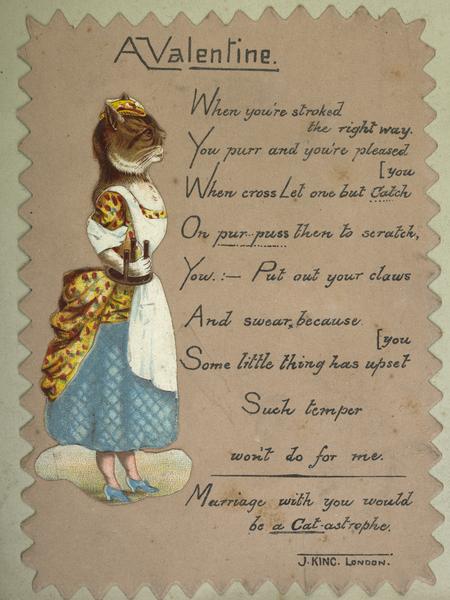 A Valentine.
When you're stroked
the right way.
You purr and you're pleased
[you
When cross Let one but Catch
On pur-puss then to scratch,
You.:— Put out your claws
And swear, because
[you
Some little thing has upset
Such temper
won't do for me.
Marriage with you would
be a Cat-astrophe.
J. KING. LONDON.